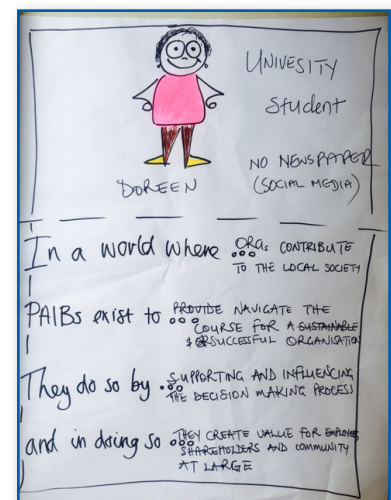 UNIVESITY
Student
NO NEWSPAPER
(SOCIAL MEDIA)
DOREEN
In a world where ORGs CONTRIBUTE
TO THE LOCAL SOCIETY
PAIBs exist to PROVIDE NAVIGATE THE
COURSE FOR A SUSTAINABLE
& SUCCESSFUL ORGANISATION
They do so by SUPPORTING AND INFLUENCING
THE DECISION MAKING PROCESS
and in doing so THEY CREATE VALUE FOR EMPLOYEES
SHAREHOLDERS AND COMMUNITY
AT LARGE